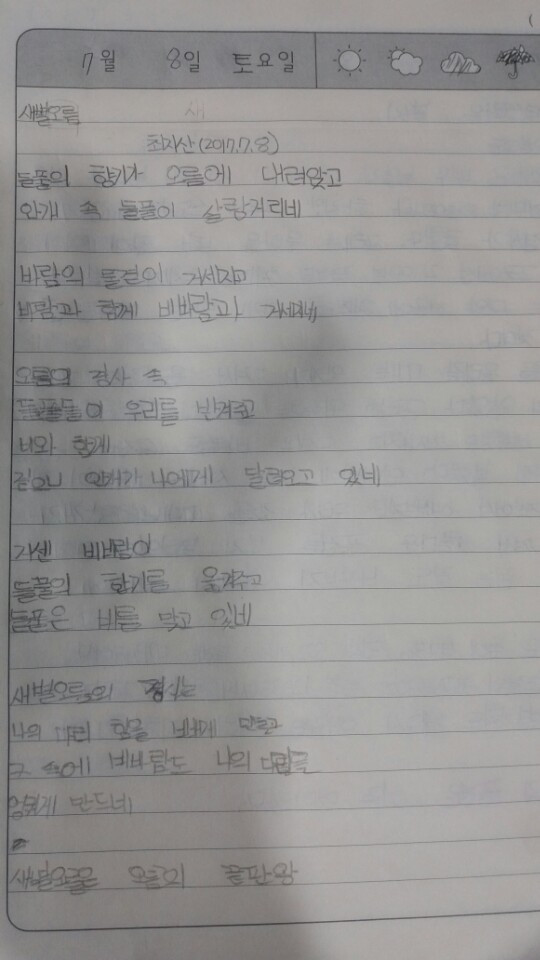 7월 8일 토요일
새별오름
최자산(2017.7.8)
들풀의 향기가 오름에 내려앉고
안개 속 들풀이 살랑거리네
바람의 물결이 거세지고
바람과 함께 비바람과 거세지네
오름의 경사 속
들풀들이 우리를 반겨주고
너와 함께
짙으니 안개가 나에게 달려오고 있네
거센 비바람이
들풀의 향기를 옮겨주고
들풀은 비를 맞고 있네
새별오름의 경사는
나의 다리 힘을 빠지게 만들고
그 속에 비바람도 나의 다리를
얼게 만드네
새별오름은 오름의 끝판왕